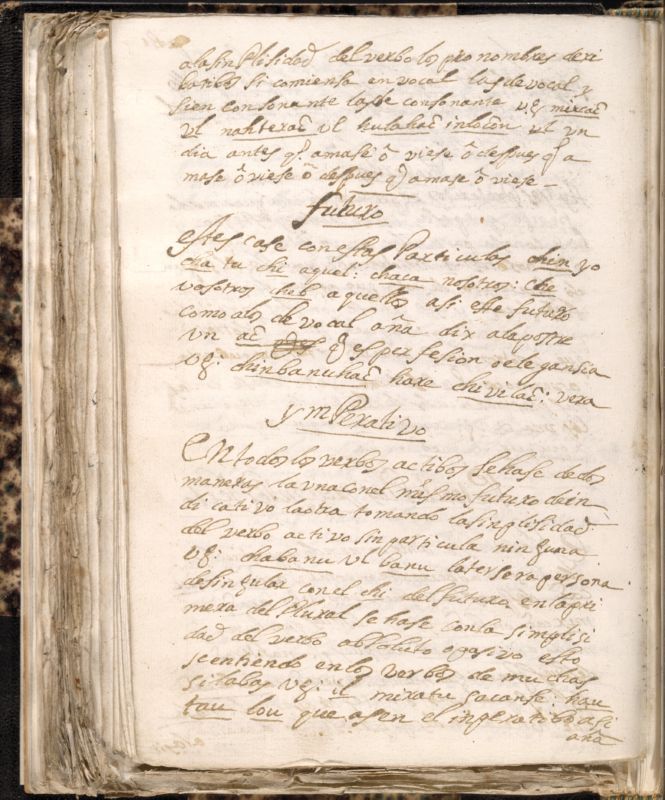 ala sinplisidad del verbo los pro nombres deri
batibos si comiensa en vocal las de vocal y
si en consonante las de consonante vg mixcaꞇ̃
Vl nahteraꞇ̃ Vl hulahaꞇ̃ inlocõn vl vn
dia antes q̃ amase ô viese ô despues q̃ a
mase ô viese ô despues q̃ amase ô viese –
futuro
estes case con estas Particulas chin yo
cha tu chi aquel: chaca nosotros: che
vosotros cheb aquellos asi este futuro
como alos de vocal aña dix ala postre
un aꞇ̃ q̃ es per fesion o elegansia
vg: chinbanuhaꞇ̃ hare chivilaꞇ̃: vera
ymPerativo
EN todos los verbos actibos se hase de dos
maneras la una con el mismo futuro de in-
dicativo la otra tomando la sinplisidad
del verbo activo sin particula ninguna
vg: chabanu Vl banu la tersera persona
de singular con el chi del futuro, en la pri
mera del Plural se hase con la simplisi
dad del verbo absoluto o pasivo esto
se entiendo en los verbos de muchas
silabas vg: il mixatu sacanse: hau
tau lou que asen el inperatibo asi
aña